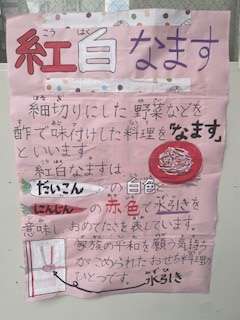 紅白なます
細切りにした野菜などを
酢で味付けした料理を"なます"
といいます。
紅白なますは
だいこんの白色
にんじんの赤色で水引きを
意味し、おめでたさを表しています。
家族の平和を願う気持ち
がこめられたおせち料理の
ひとつです。
水引き